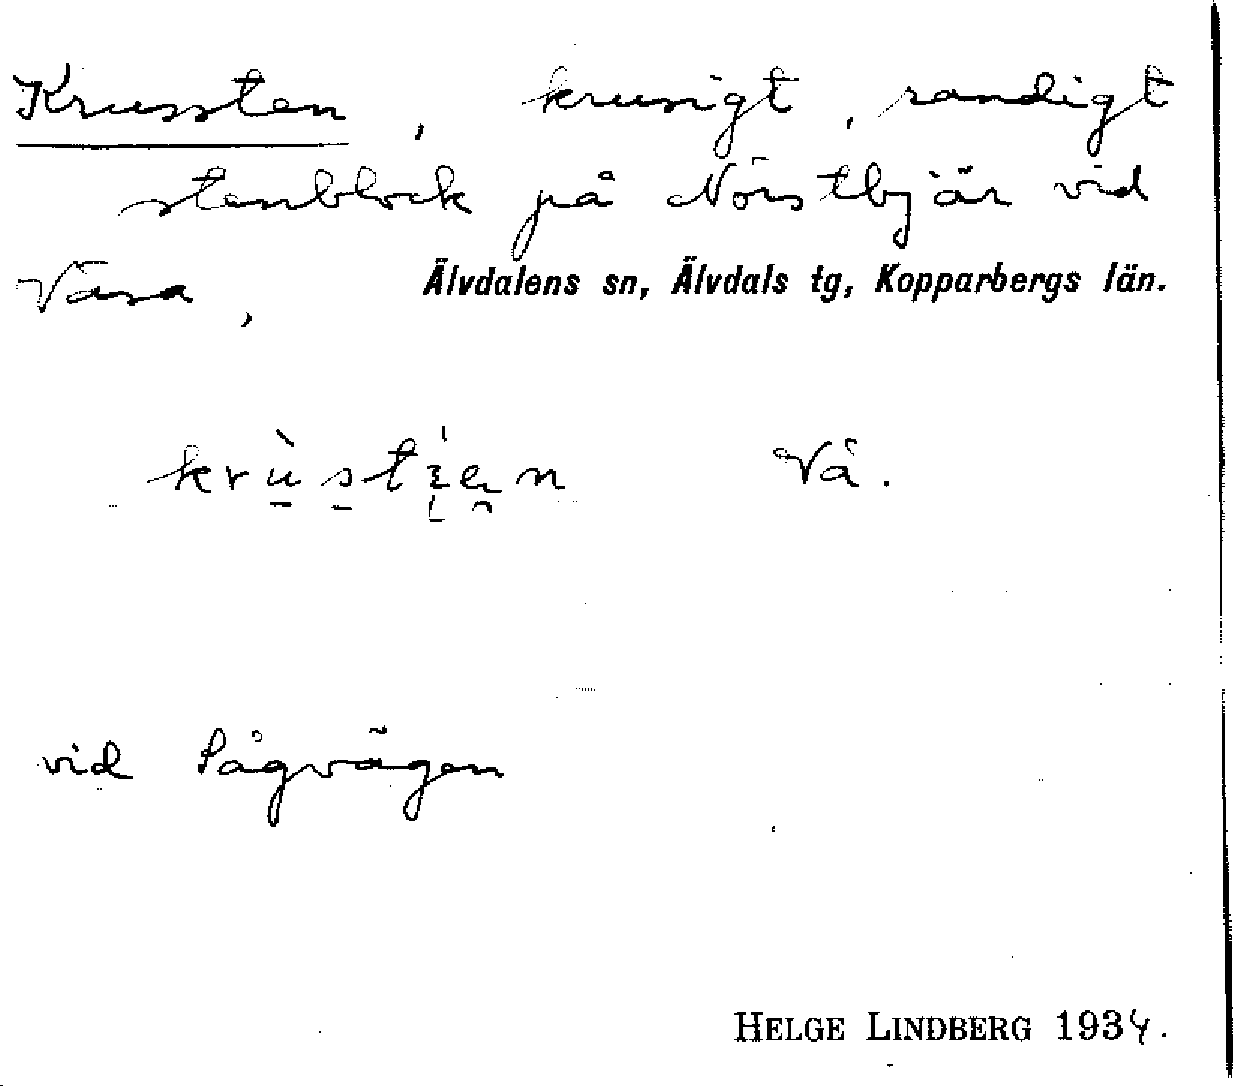 Krussten, krusigt, randigt
stenblock på Nörstbjär vid
Våsa, Älvdalens sn, Älvdals tg, Kopparbergs län.
Vå.
vid Lågvägen
HELGE LINDBERG 1934.